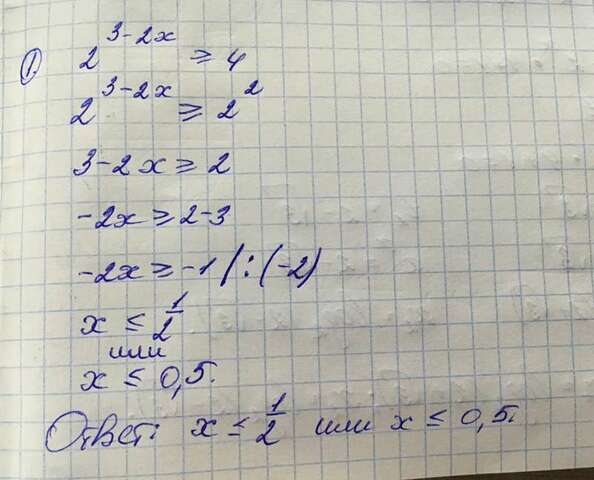 1. 2^{3-2x} ≥ 4
2^{3-2x} ≥ 2^2
3-2x ≥ 2
-2x ≥ 2-3
-2x ≥ -1 /:(-2)
x ≤ 1/2
или
x ≤ 0,5.
Ответ: x ≤ 1/2 или x ≤ 0,5.